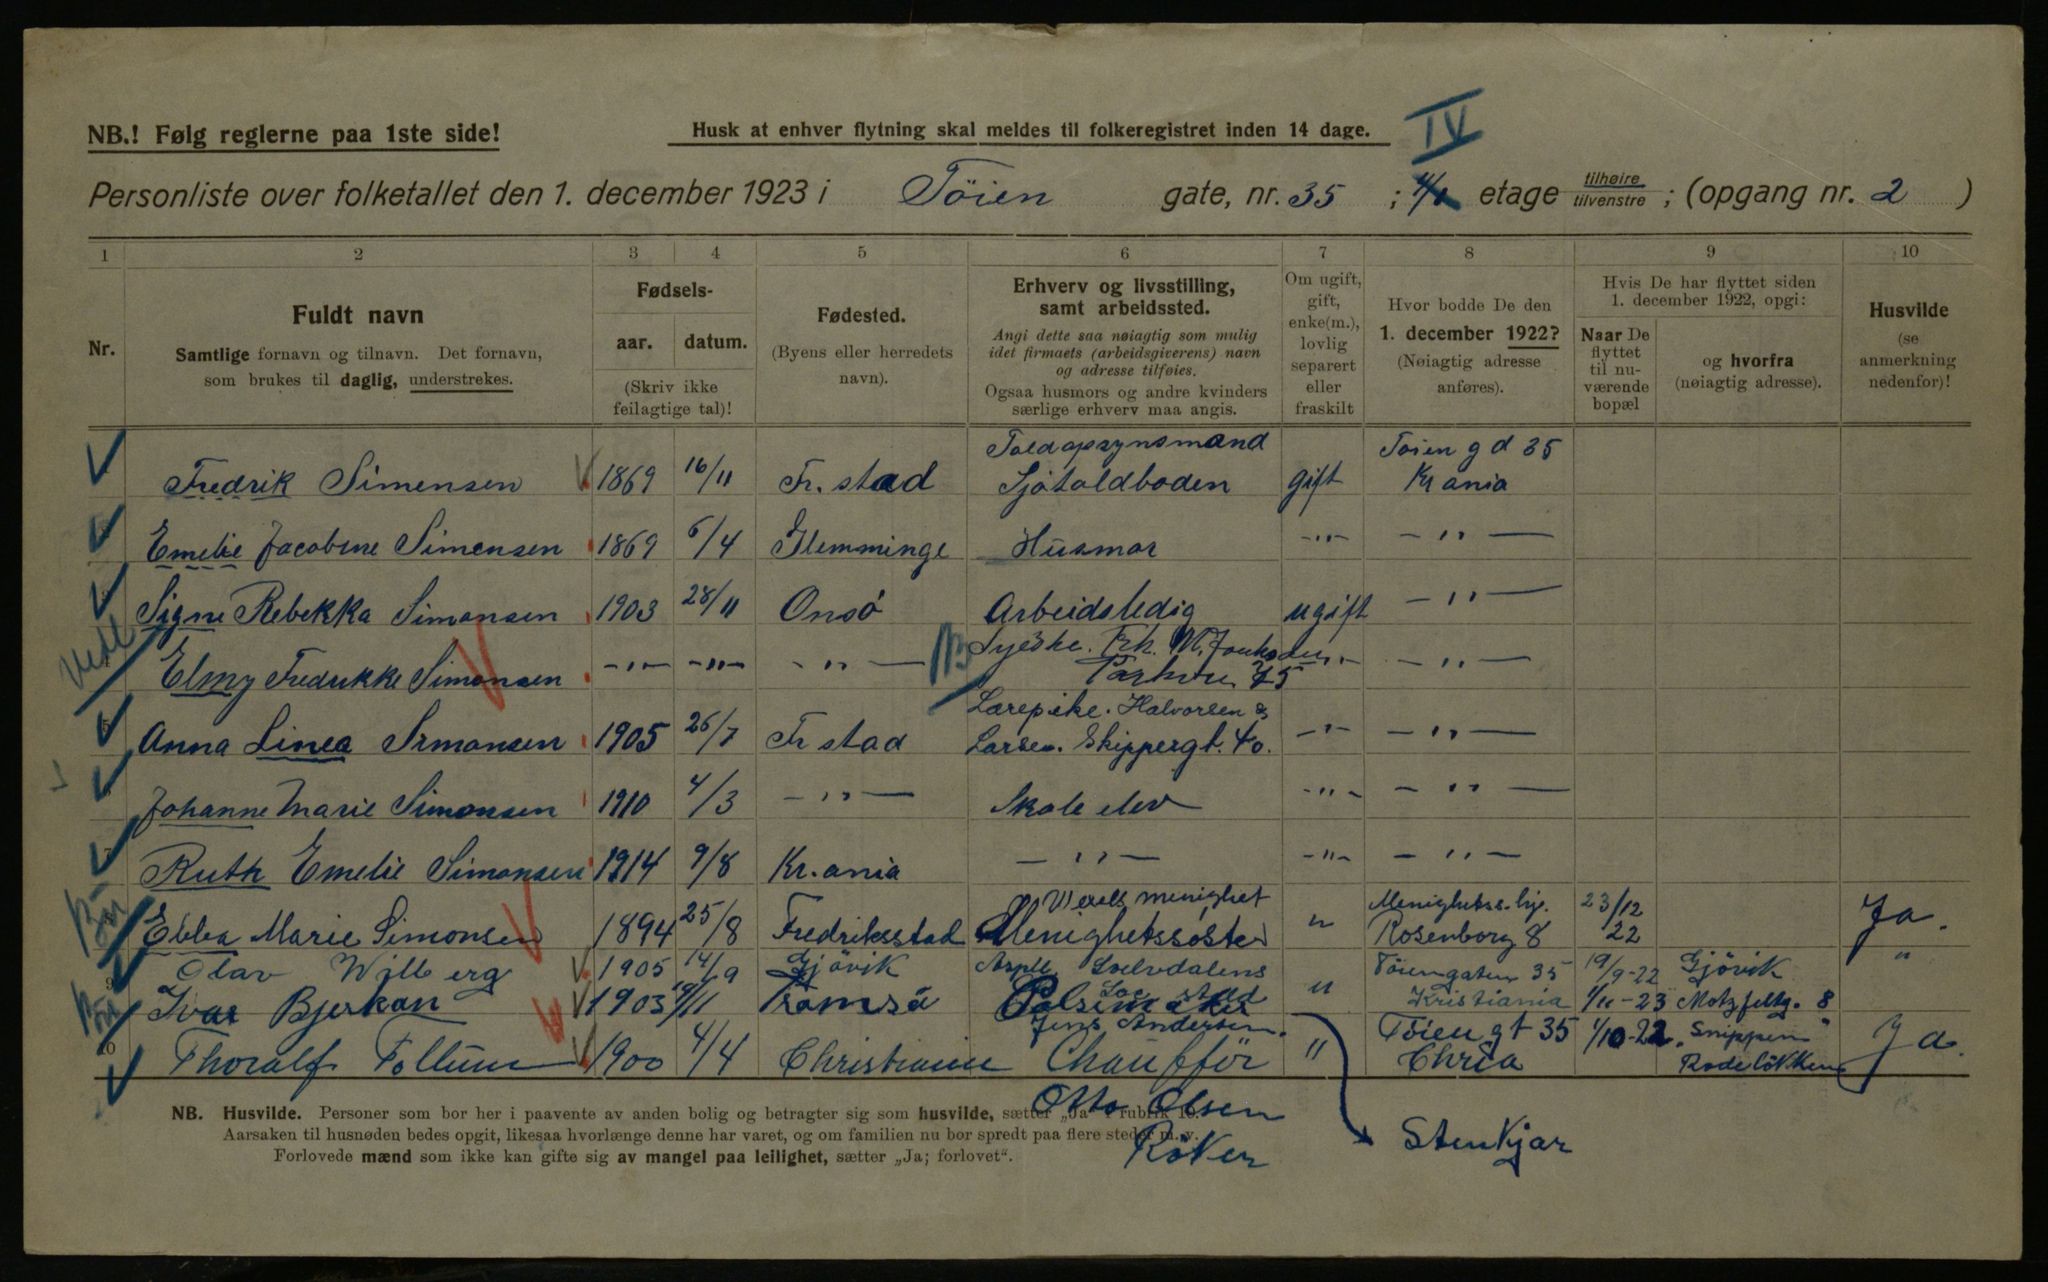 IV
NB.! Følg reglerne paa 1ste side!
Husk at enhver flytning skal meldes til folkeregistret inden 14 dage.
Personliste over folketallet den 1. december 1923 i Töien gate, nr. 35 ; etage tilhøire tilvenstre ; (opgang nr. 2 )
1 2 3 4 5 6 7 8 9 10
Nr.
Fuldt navn
Samtlige fornavn og tilnavn. Det fornavn,
som brukes til daglig, understrekes.
Fødsels-
aar. datum.
(Skriv ikke
feilagtige tal)!
Fødested.
(Byens eller herredets
navn).
Erhverv og livsstilling,
samt arbeidssted.
Angi dette saa nøiagtig som mulig
idet firmaets (arbeidsgiverens) navn
og adresse tilføies.
Ogsaa husmors og andre kvinders
særlige erhverv maa angis.
Om ugift,
gift,
enke(m.),
lovlig
separert
eller
fraskilt
Hvor bodde De den
1. december 1922?
(Nøiagtig adresse
anføres).
Hvis De har flyttet siden
1. december 1922, opgi:
Naar De
flyttet
til nu-
værende
bopæl
og hvorfra
(nøiagtig adresse).
Husvilde
(se
anmerkning
nedenfor)!
Toldopsynsmand Töien gd 35
Fredrik Simensen 1869 16/11 Fr. stad Sjötoldboden gift Kr ania
Emelie Jacobine Simensen 1869 6/4 Glemminge Husmor -"- - " -
Signe Rebekka Simonsen 1903 28/11 Onsö Arbeidsledig ugift - " -
Syerske. Frk. M.
4 Elmy Fredrikke Simonsen -"- -"- - " - 75 - " -
Lærepike. Halvorsen &
5 Anna Linea Simonsen 1905 26/7 Fr stad Larsen. Skippergt. 40. -"- - " -
Johanne Marie Simonsen 1910 4/3 - " - Skole elev -"- - " -
7 Ruth Emelie Simonsen 1914 9/8 Kr. ania - " - -"- - " -
menighet Menighetss. 23/12
Ebba Marie Simonsen 1894 25/8 Fredriksstad Menighetssöster " Rosenborg 8 22 Ja.
Olav Wilberg 1905 14/9 Gjövik Töiengaten 35 19/9-22 Gjövik "
9 Ivar Bjerkan 1903 Tromsö Pölsemaker " Kristiania 1/11-23 Motzfeltg. 8
Jens Andersen. Töien gt 35 1/10-22 "Snippen"
10 Thoralf Follum 1900 4/4 Christiania Chaufför " Chria Rodelökken Ja.
Otto Olsen
Röken
Stenkjær
NB. Husvilde. Personer som bor her i paavente av anden bolig og betragter sig som husvilde, sætter „Ja" i rubrik 10.
Aarsaken til husnøden bedes opgit, likesaa hvorlænge denne har varet, og om familien nu bor spredt paa flere steder m. v.
Forlovede mænd som ikke kan gifte sig av mangel paa leilighet, sætter „Ja; forlovet".